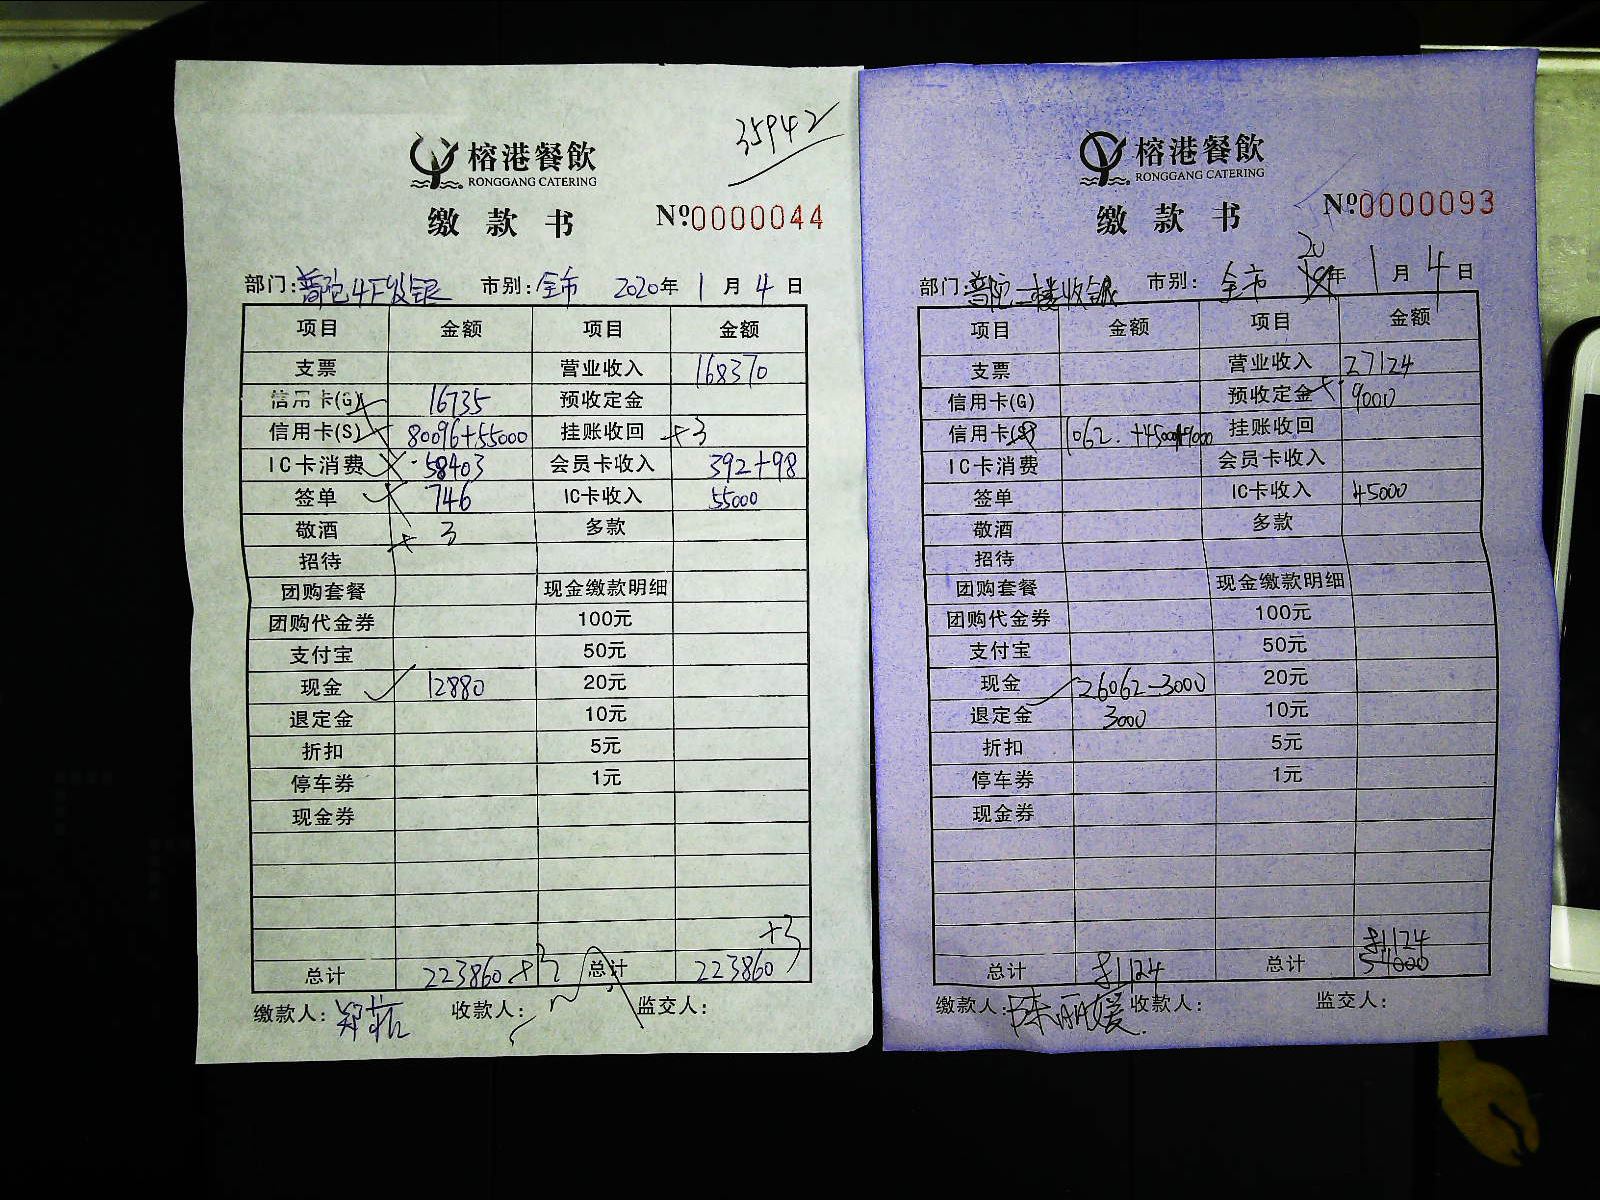 35942
榕港餐飲
RONGGANG CATERING
缴款书 №0000044
部门:普陀4F收银 市别:全市 2020年1月4日
项目 金额 项目 金额
支票 营业收入 168370
信用卡(G) 16735 预收定金
信用卡(S) 80096+55000 挂账收回 +3
IC卡消费 58403 会员卡收入 392+98
签单 746 IC卡收入 55000
敬酒 + 3 多款
招待
团购套餐 现金缴款明细
团购代金券 100元
支付宝 50元
现金 12880 20元
退定金 10元
折扣 5元
停车券 1元
现金券
+3
总计 223860+3 总计 223860
缴款人: 收款人: 监交人:
榕港餐飲
RONGGANG CATERING
缴款书 №0000093
部门:普陀二楼收银 市别:全市 20年1月4日
项目 金额 项目 金额
支票 营业收入 27124
信用卡(G) 预收定金 9000
信用卡(S) 1062.+45000+9000 挂账收回
IC卡消费 会员卡收入
签单 IC卡收入 45000
敬酒 多款
招待
团购套餐 现金缴款明细
团购代金券 100元
支付宝 50元
现金 26062-3000 20元
退定金 3000 10元
折扣 5元
停车券 1元
现金券
81124
总计 81124 总计 54000
缴款人:陈丽媛 收款人: 监交人: